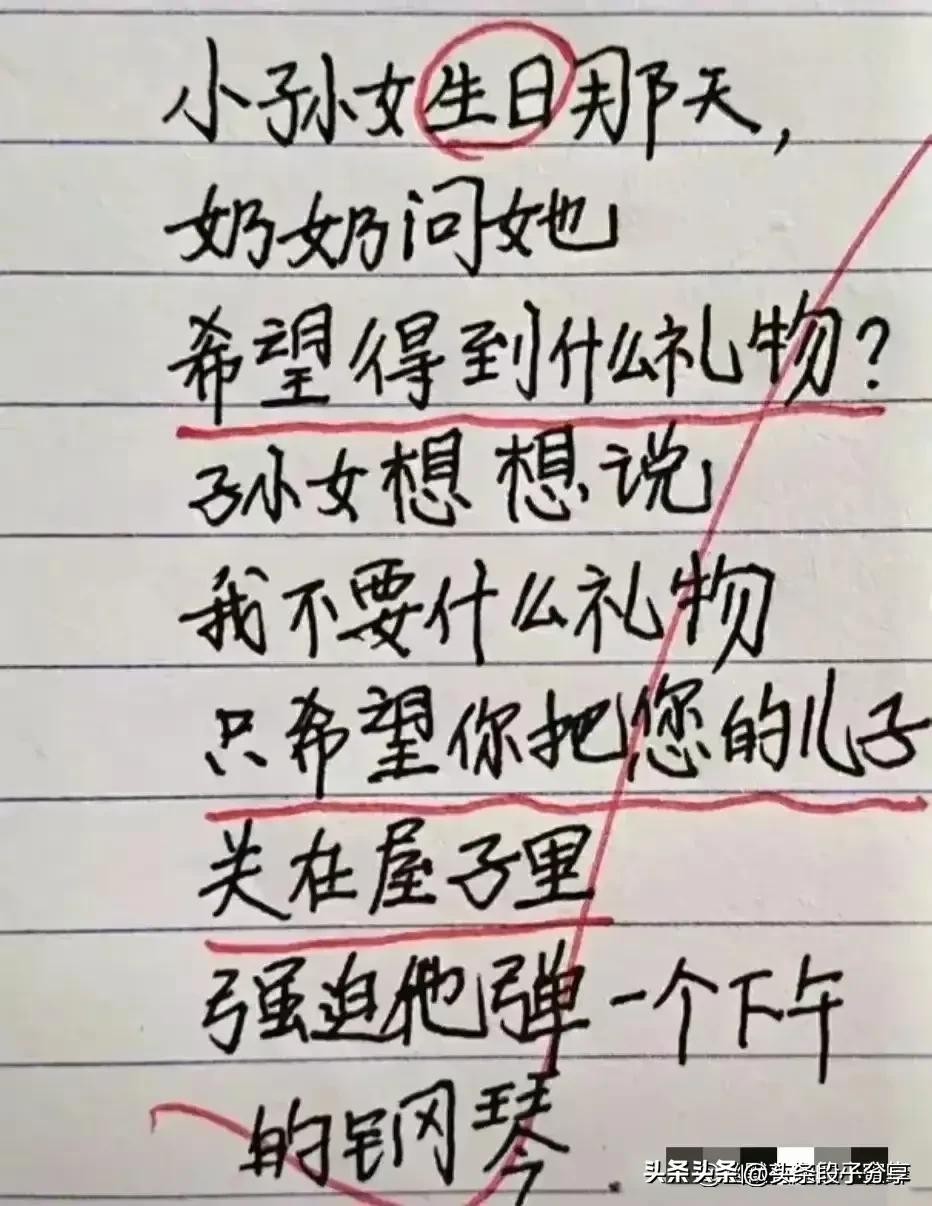 小孙女生日那天，
奶奶问她
希望得到什么礼物？
孙女想想说
我不要什么礼物
只希望你把您的儿子
关在屋子里
强迫他弹一个下午
的钢琴
头条头条@头条段子分享